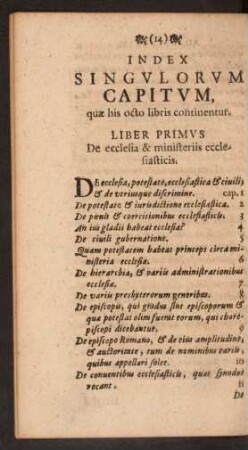 (14)
INDEX
SINGVLORVM
CAPITVM,
quæ his octo libris continentur.
LIBER PRIMVS
De ecclesia & ministeriis eccle-
siasticis.
DE ecclesia, potestate, ecclesiastica & ciuili,
& de veriusque discrimine. cap. 1
De potestate & iurisdictione ecclesiastica. 2
De pœnis & coercitionibus ecclesiasticis. 3
An ius gladii habeat ecclesia? 4
De ciuili gubernatione. 5
Quam potestatem habeat princeps circa mi-
nisteria ecclesiæ. 6
De hierarchia, & variis administrationibus
ecclesiæ. 7
De variis presbyterorum generibus. 8
De episcopis, qui gradus sint episcoporum &
quæ potestas olim fuerit eorum, qui chore-
piscopi dicebantur. 9
De episcopo Romano, & de eius amplitudine,
& auctoritate, tum de nominibus variis,
quibus appellari solet. 10
De conuentibus ecclesiasticis, quas synodos
vocant. 11
De